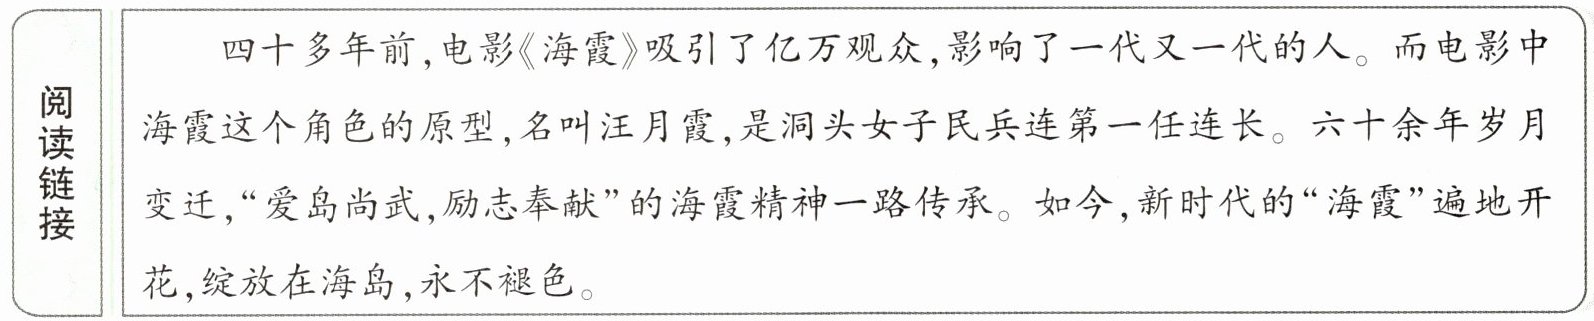 阅读链接
四十多年前,电影《海霞》吸引了亿万观众,影响了一代又一代的人。而电影中
海霞这个角色的原型,名叫汪月霞,是洞头女子民兵连第一任连长。六十余年岁月
变迁,“爱岛尚武,励志奉献”的海霞精神一路传承。如今,新时代的“海霞”遍地开
花,绽放在海岛,永不褪色。